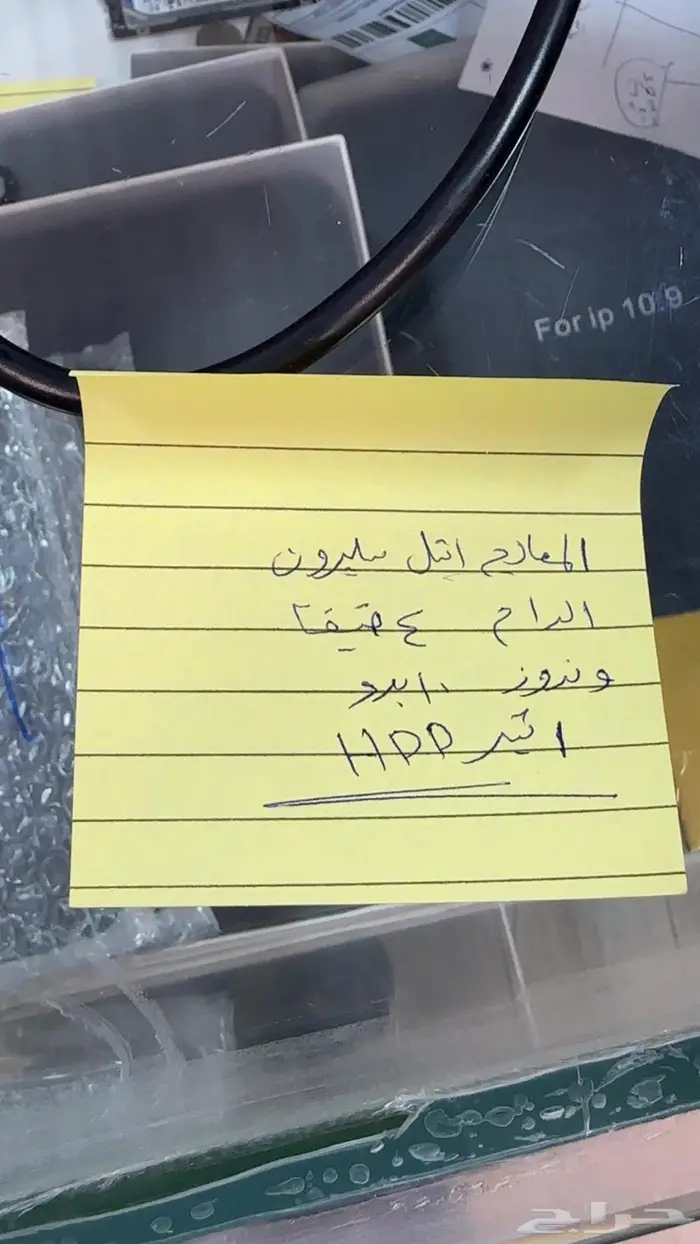 For ip 10.9
المعالج انتل سليرون
الرام ٤ حقيقا
وندوز ١٠ برو
HDD
حراج